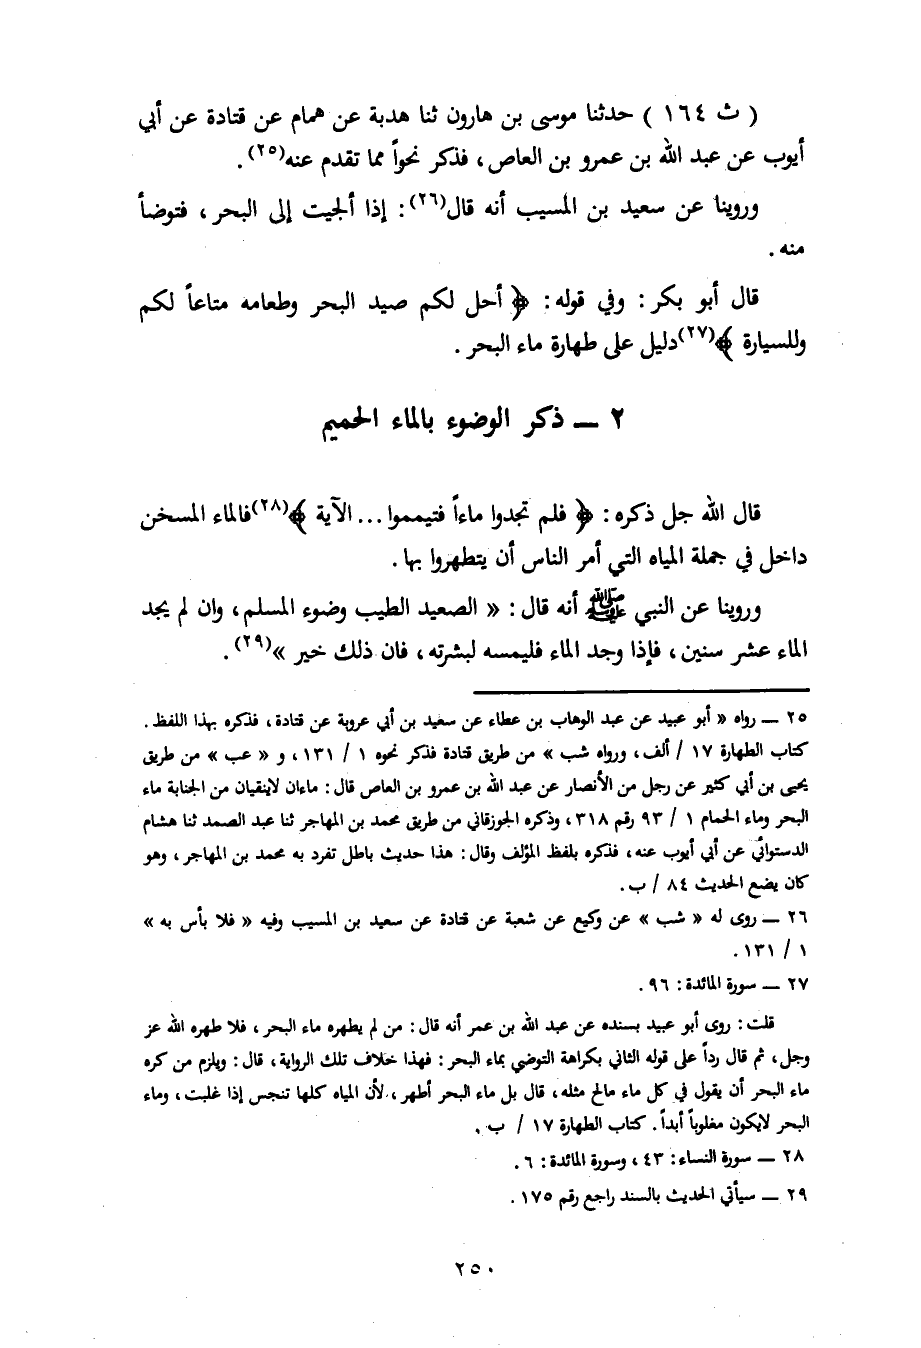 ( ث ١٦٤ ) حدثنا موسى بن هارون ثنا هدبة عن همام عن قتادة عن أبي
أيوب عن عبد الله بن عمرو بن العاص ، فذكر نحواً مما تقدم عنه(٢٥) .
وروينا عن سعيد بن المسيب أنه قال(٢٦) : إذا ألجيت إلى البحر ، فتوضأ
منه .
قال أبو بكر : وفي قوله : ﴿ أحل لكم صيد البحر وطعامه متاعاً لكم
وللسيارة ﴾(٢٧) دليل على طهارة ماء البحر .
٢ ــ ذكر الوضوء بالماء الحميم
قال الله جل ذكره : ﴿ فلم تجدوا ماءاً فتيمموا ... الآية ﴾(٢٨) فالماء المسخن
داخل في جملة المياه التي أمر الناس أن يتطهروا بها .
وروينا عن النبي ﷺ أنه قال : « الصعيد الطيب وضوء المسلم ، وان لم يجد
الماء عشر سنين ، فإذا وجد الماء فليمسه لبشرته ، فان ذلك خير »(٢٩) .
٢٥ ــ رواه « أبو عبيد عن عبد الوهاب بن عطاء عن سعيد بن أبي عروبة عن قتادة ، فذكره بهذا اللفظ .
كتاب الطهارة ١٧ / ألف ، ورواه شب » من طريق قتادة فذكر نحوه ١ / ١٣١ ، و « عب » من طريق
يحيى بن أبي كثير عن رجل من الأنصار عن عبد الله بن عمرو بن العاص قال : ماءان لاينقيان من الجنابة ماء
البحر وماء الحمام ١ / ٩٣ رقم ٣١٨ ، وذكره الجوزقاني من طريق محمد بن المهاجر ثنا عبد الصمد ثنا هشام
الدستوائي عن أبي أيوب عنه ، فذكره بلفظ المؤلف وقال : هذا حديث باطل تفرد به محمد بن المهاجر ، وهو
كان يضع الحديث ٨٤ / ب .
٢٦ ــ روى له « شب » عن وكيع عن شعبة عن قتادة عن سعيد بن المسيب وفيه « فلا بأس به »
١ / ١٣١ .
٢٧ ــ سورة المائدة : ٩٦ .
قلت : روى أبو عبيد بسنده عن عبد الله بن عمر أنه قال : من لم يطهره ماء البحر ، فلا طهره الله عز
وجل ، ثم قال رداً على قوله الثاني بكراهة التوضي بماء البحر : فهذا خلاف تلك الرواية ، قال : ويلزم من كره
ماء البحر أن يقول في كل ماء مالح مثله ، قال بل ماء البحر أطهر ، لأن المياه كلها تنجس إذا غلبت ، وماء
البحر لايكون مغلوباً أبداً . كتاب الطهارة ١٧ / ب .
٢٨ ــ سورة النساء : ٤٣ ، وسورة المائدة : ٦ .
٢٩ ــ سيأتي الحديث بالسند راجع رقم ١٧٥ .
٢٥٠